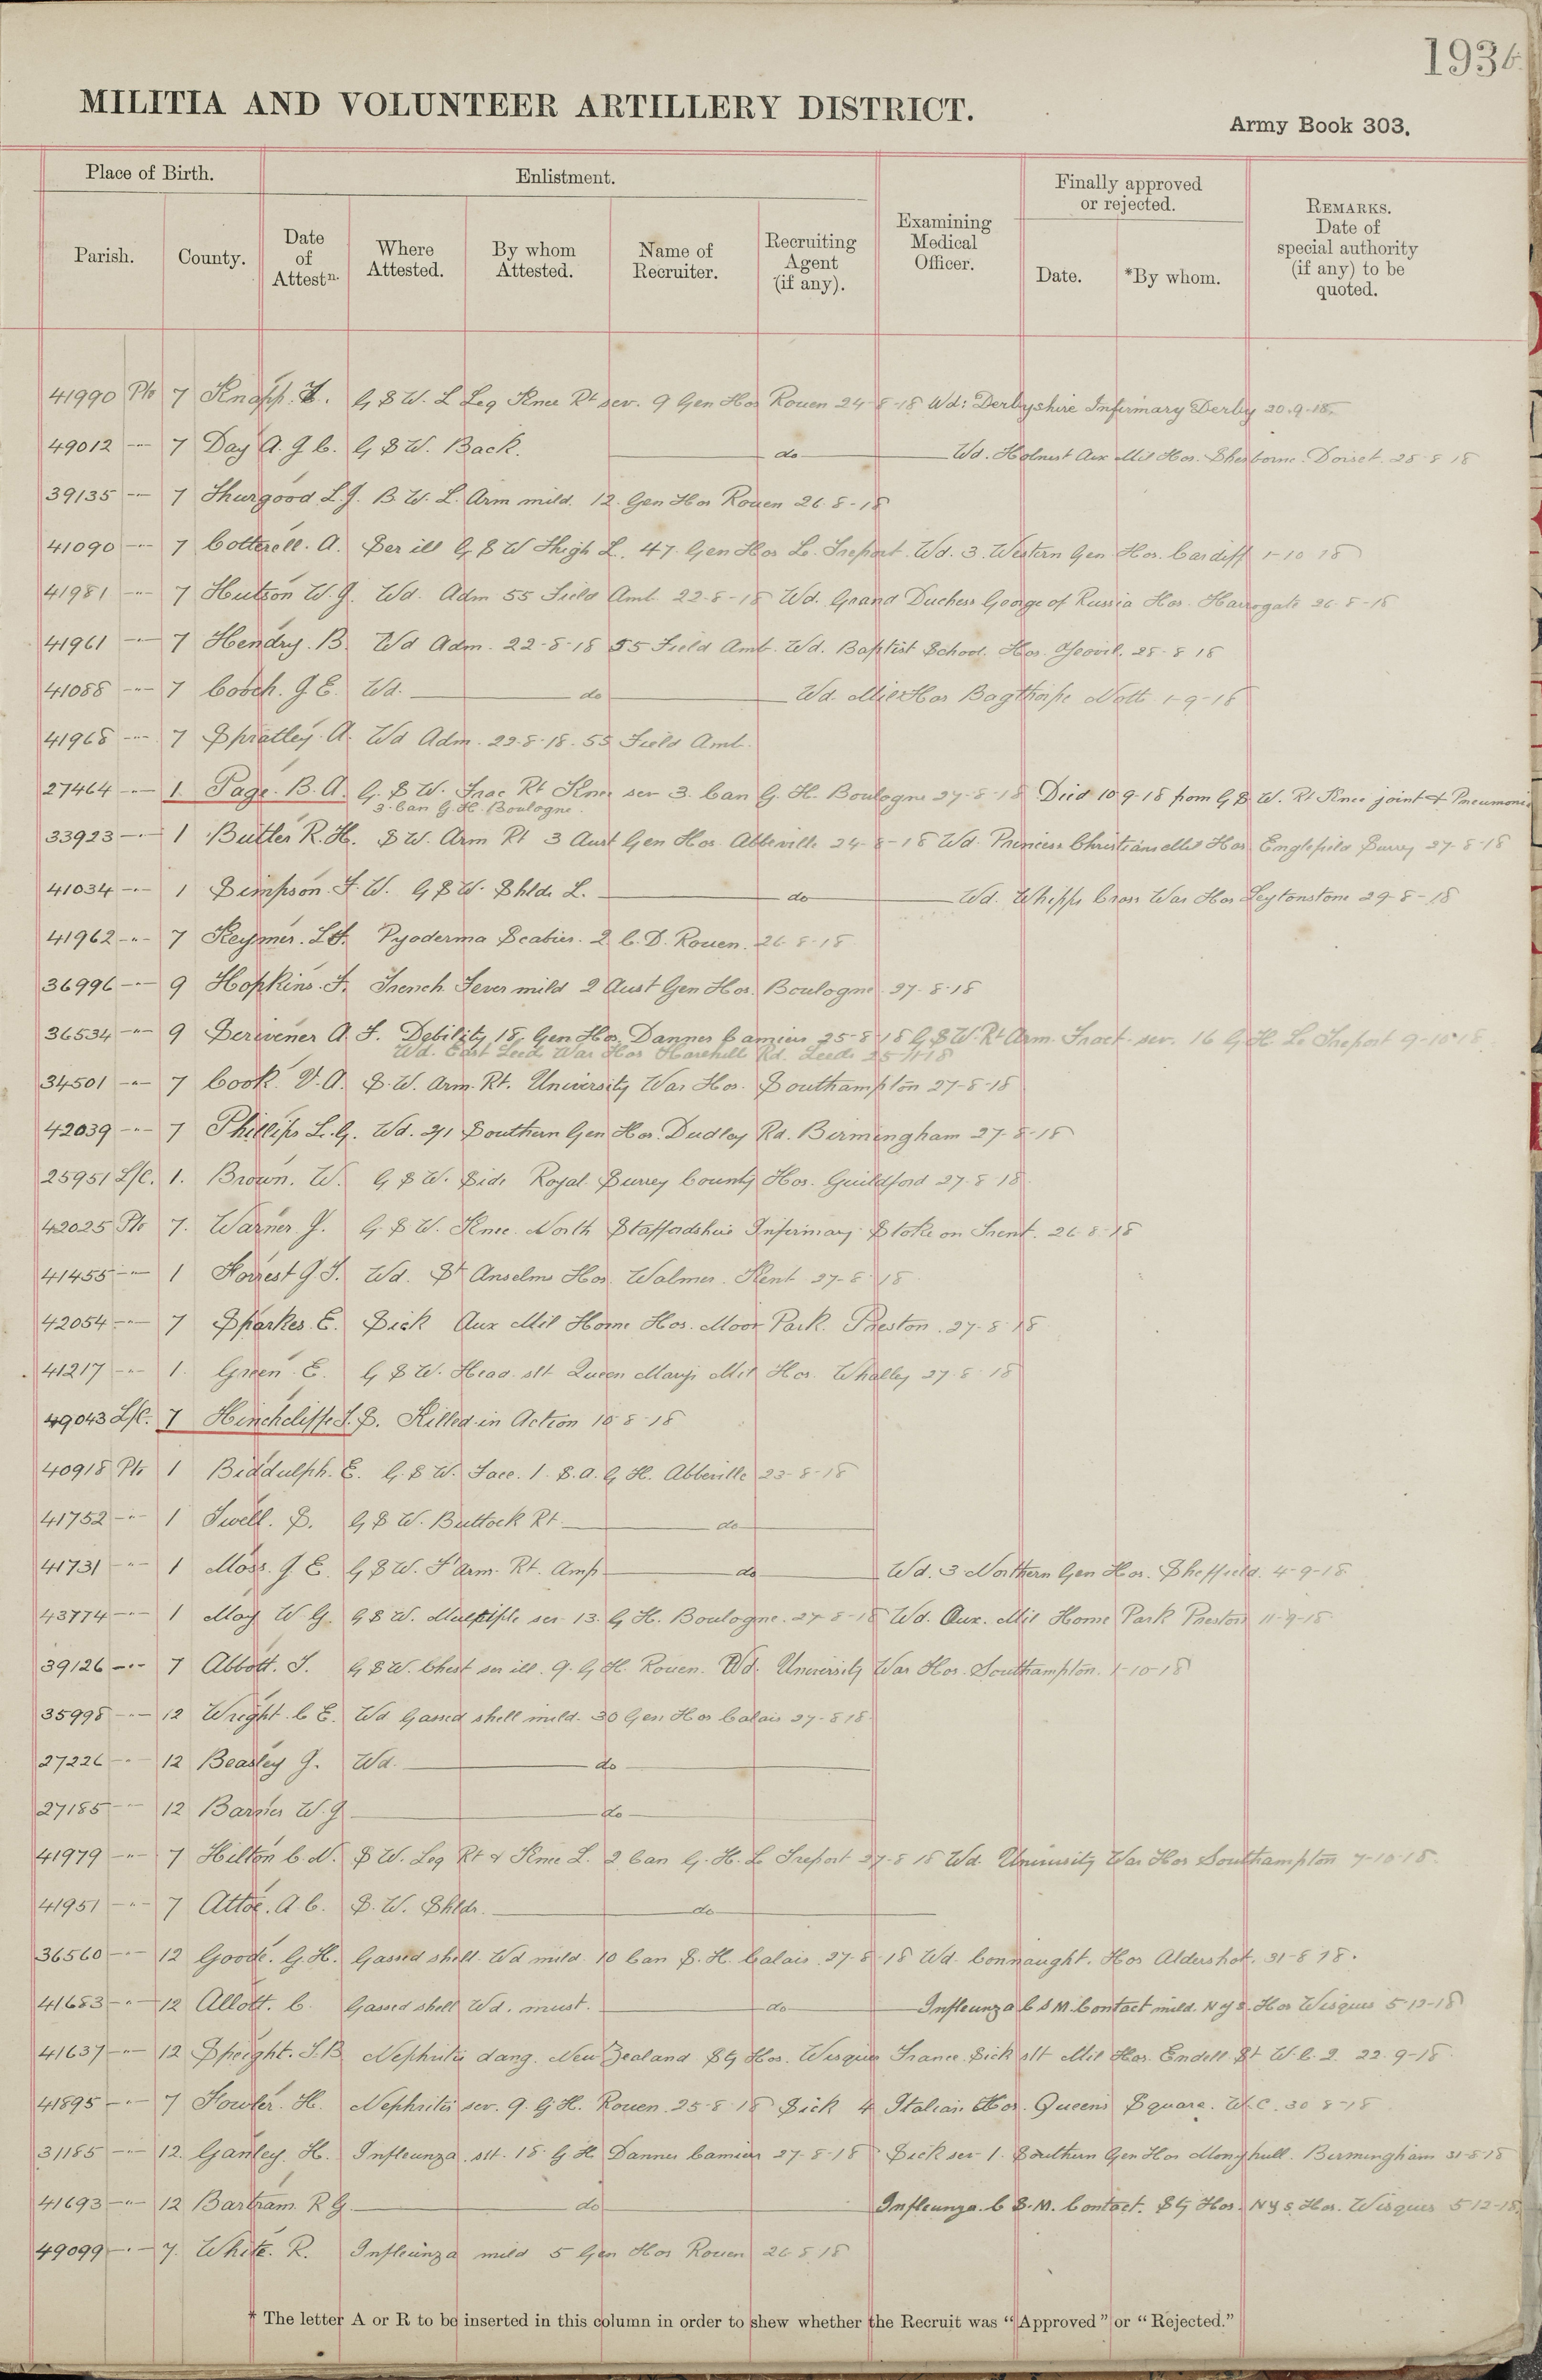 193
MILITIA AND VOLUNTEER ARTILLERY DISTRICT.
Army Book 303.
Place of Birth.
Enlistment.
Finally approved or rejected.
Parish.
County.
Date of Attestn.
Where Attested.
By whom Attested.
Name of Recruiter.
Recruiting Agent (if any).
Examining Medical Officer.
Date.
*By whom.
REMARKS. Date of special authority (if any) to be quoted.
41990 Pte 7 Knapp. G S W. L Leg Knee Rt sev. 9 Gen Hos Rouen 24-8-18 Wd: Derbyshire Infirmary Derby 20.9.18.
49012 -"- 7 Day A. G C. G S W. Back. do Wd. Holnest Aux Mil Hos. Sherborne. Dorset. 28 8 18
39135 -"- 7 Thurgood L.J. B. W. L. Arm mild. 12. Gen Hos Rouen 26.8-18
41090 -"- 7 Cotterell. A. Ser ill G S W Thigh L. 47. Gen Hos Le. Treport. Wd. 3. Western Gen Hos. Cardiff 1-10 18
41981 -"- 7 Hutson W. G. Wd. Adm 55 Field Amb. 22-8-18 Wd. Grand Duchess George of Russia Hos. Harrogate 26-8-18
41961 -"- 7 Hendry. B. Wd Adm. 22-8-18 55 Field Amb. Wd. Baptist School. Hos. Yeovil. 28 8 18
41088 -"- 7 Cooch. G E. Wd. do Wd. Mil Hos Bagthorpe Notts 1-9-18
41968 -"- 7 Spratley. A. Wd Adm. 22-8-18. 55 Field Amb.
27464 -"- 1. Page. B. A. G. S W. Frac Rt Knee sev 3. Can G. H. Boulogne 27-8-18 Died 10.9.18 from G S. W. Rt Knee joint & Pneumonia
3. Can G. H. Boulogne.
33923 -"- 1 Butler R. H. S W. Arm Rt 3 Aust Gen Hos. Abbeville 24-8-18 Wd. Princess Christian Mil Hos Englefield Surrey 27-8-18
41034 -"- 1 Simpson F. W. G S W. Shldr L. do Wd. Whipps Cross War Hos Leytonstone 29-8-18
41962 -"- 7 Keymer. Pyoderma Scabies. 2 C. D. Rouen. 26.8-18
36996 -"- 9 Hopkins. F. Trench Fever mild 2 Aust Gen Hos. Boulogne 27-8-18
36534 -"- 9 Scrivener A. F. Debility 18. Gen Hos. Dannes Camiers 25-8-18 G. S W. Rt Arm. Fract. sev. 16 G H. Le Treport 9-10-18
Wd. East Leeds War Hos Harehill Rd. Leeds 25 11 18
34501 -"- 7 Cook. V. A. S. W. Arm. Rt. University War Hos. Southampton 27-8-18
42039 -"- 7 Phillips L. G. Wd. 2/1 Southern Gen Hos. Dudley Rd. Birmingham 27-8-18
25951 L/C. 1. Brown. W. G S W. Side Royal. Surrey County Hos. Guildford 27.8 18
42025 Pte 7. Warner. J. G. S W. Knee. North Staffordshire Infirmary Stoke on Trent. 26-8-18
41455 -"- 1 Forrest G J. Wd. St Anselms Hos Walmer. Kent 27-8 18
42054 -"- 7 Sparkes. E. Sick Aux Mil Home Hos. Moor Park. Preston. 27-8-18
41217 -"- 1. Green E. G S W. Head. slt Queen Marys Mil Hos. Whalley 27.8 18
49043 L/C. 7 Hinchcliffe S. Killed in Action 10 8-18
40918 Pte 1 Biddulph. E. G. S W. Face. 1. S. A. G H. Abbeville 23-8-18
41752 -"- 1 Twell. S. G S W. Buttock Rt. do
41731 -"- 1 Moss. G E. G S W. F'Arm. Rt. Amp. do Wd. 3 Northern Gen Hos. Sheffield. 4-9-18
43774 -"- 1 May W G. G S W. Multiple sev 13. G H. Boulogne. 27-8-18 Wd. Aux. Mil Home Park Preston 11-9-18
39126 -"- 7 Abbott. J. G S W. Chest ser ill. 9. G H. Rouen. Wd. University War Hos. Southampton. 1-10-18
35998 -"- 12 Wright. C E. Wd Gassed shell mild. 30 Gen Hos Calais 27-8 18
27226 -"- 12 Beasley G. Wd. do
27185 -"- 12 W. G. do
41979 -"- 7 Hilton C. N. S W. Leg Rt & Knee L. 2 Can G. H. Le Treport 27-8 18 Wd. University War Hos Southampton 7-10-18.
41951 -"- 7 Attoe. A. C. S. W. Shldr. do
36560 -"- 12 Goode. G. H. Gassed shell Wd mild. 10 Can S. H. Calais. 27-8-18 Wd. Connaught. Hos Aldershot. 31-8 18.
41683 -"- 12 Allott. C. Gassed shell Wd. must. do Infleunza C S M. Contact mild. N y S. Hos Wisques 5-12-18
41637 -"- 12 Speight. J. B. Nephritis dang. New Zealand Stg Hos. Wisques France. Sick slt Mil Hos. Endell St W. C. 2. 22. 9-18.
41895 -"- 7 Fowler. H. Nephritis sev. 9. G H. Rouen. 25-8-18 Sick 4 Italian Hos. Queens Square. W. C. 30 8-18
31185 -"- 12. Ganley. H. Infleunza. slt. 18 G H Dannes Camiers 27-8-18 Sick sev 1. Southern Gen Hos Monyhull. Birmingham 31-8-18
41693 -"- 12 Bartram. R G. do Infleunza. C S. M. Contact. Stg Hos. N y S. Hos. Wisques 5 12-18.
49099 -"- 7. White. R. Infleunza mild 5 Gen Hos Rouen 26 8 18
* The letter A or R to be inserted in this column in order to shew whether the Recruit was "Approved" or "Rejected."